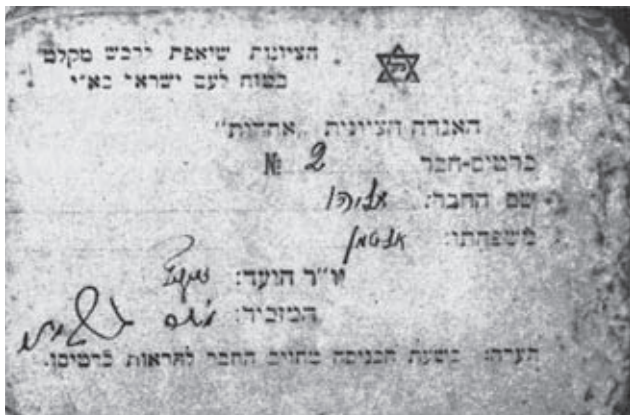 הציונות שואפת לרכש מקלט
בטוח לעם ישראל בא"י
האגדה הציונית "אחדות"
כרטיס-חבר № 2
שם החבר: אליהו
משפחתו:
יו"ר הועד:
המזכיר:
הערה: בשעת הכניסה מחויב החבר להראות כרטיסו.